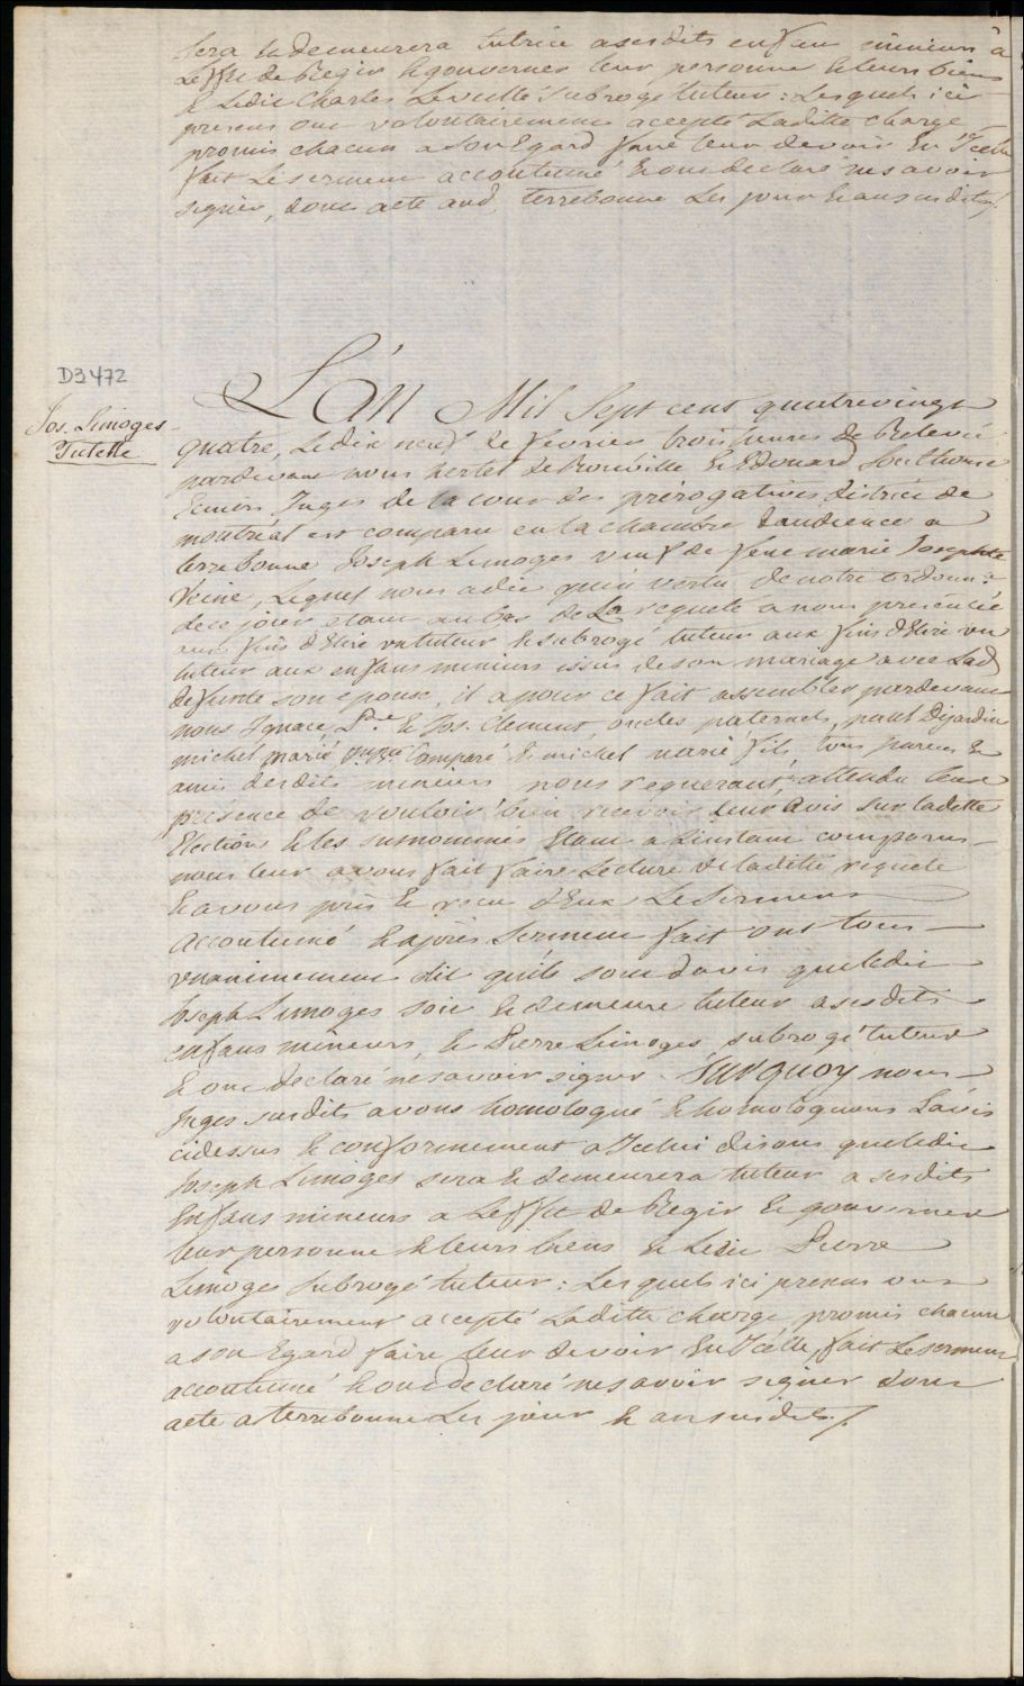 sera & demeurera tutrice a ses dits enfans mineurs à
Leffet de Regir & gouverner leur personne & leurs biens
& Ledit Charles Leveillé Subrogé tuteur : Lesquels ici
presens ont volontairement accepté Laditte charge
promis chacun a Son Egard faire leur devoir En Icelle
fait Le serment accoutumé & ont declaré ne savoir
signer, dont acte aud. terrebonne Les jour & an susdits /.
D3472
Jos. Limoges
Tutelle
L'an Mil Sept cent quatrevingt
quatre, Le dix neuf de fevrier trois heures de Relevée
pardevant nous hertel De Rouville & Edouard Southouse
Ecuiers Juges de la cour des prérogatives, district de
montréal est comparu en la chambre d'audience a
terrebonne Joseph Limoges veuf de feue marie Josephte
, Lequel nous a dit qu'en vertu de notre ordonn.ce
de ce jour etant au bas de La requete a nous presentée
aux fins d'Elire un tuteur & subrogé tuteur aux fins d'Elire un
tuteur aux enfans mineurs issus de son mariage avec Lad.
defunte son epouse, il a pour ce fait assembler pardevant
nous Ignace, P.re & Jos. Clement, oncles paternels, paul Dejardin
michel marié Comparé & michel marié fils, tous parens &
amis desdits mineurs nous requerant, attendu leur
présence de vouloir bien recevoir leur avis sur laditte
Election & les surnommés Etant a Linstant comparus
nous leur avons fait faire Lecture de laditte requete
& avons pris & recu d'Eux Le Serment
accoutumé & après Serment fait ont tous
unanimement dit qu'ils sont d'avis que ledit
Joseph Limoges soit & demeure tuteur a ses dits
enfans mineurs, & Pierre Limoges subrogé tuteur
& ont declaré ne savoir signer. Surquoy nous
Juges susdits avons homologué & homologuons L'avis
cidessus & conformement a Icelui disons que ledit
Joseph Limoges sera & demeurera tuteur a ses dits
Enfans mineurs a Leffet de Regir & gouverner
leur personne & leurs biens & Ledit Pierre
Limoges Subrogé tuteur : Lesquels ici presens ont
volontairement accepté Laditte charge, promis chacun
a son Egard faire leur devoir En Icelle, fait Le serment
accoutumé & ont declaré ne savoir signer dont
acte a terrebonne Les jour & an susdits /.